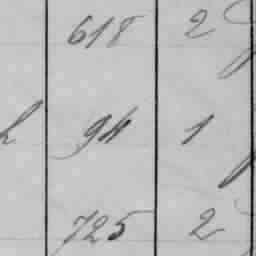 618 2
94 1
725 2